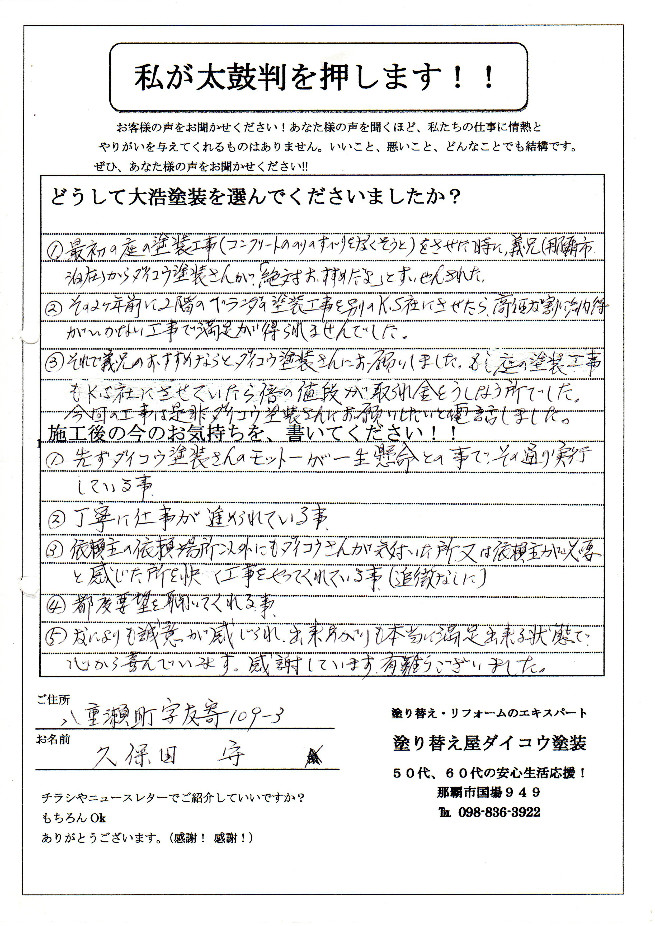 私が太鼓判を押します！！
お客様の声をお聞かせください！あなた様の声を聞くほど、私たちの仕事に情熱と
やりがいを与えてくれるものはありません。いいこと、悪いこと、どんなことでも結構です。
ぜひ、あなた様の声をお聞かせください!!
どうして大浩塗装を選んでくださいましたか？
①最初の庭の塗装工事(コンクリートののりのすべりを尽くそうと)をさせた時に、義兄(那覇市
泊在)からダイコウ塗装さんが、「絶対おすすめだよ」とすいせんされた。
②その2ヶ年前に2階のベランダの塗装工事を別のK.S社にさせたら、高価な割に
がいかない工事で満足が得られませんでした。
③それで義兄のおすすめならとダイコウ塗装さんにお願いしました。もし庭の塗装工事
もK.S社にさせていたら倍の値段が取られ金をうしなう所でした。
今回の工事は是非ダイコウ塗装さんにお願いしたいと電話しました。
施工後の今のお気持ちを、書いてください！！
①先ずダイコウ塗装さんのモットーが一生懸命との事で、その通り実行
している事
②丁寧に仕事が進められている事
③依頼主の依頼場所以外にもダイコウさんが気付いた所又は依頼主が必要
と感じた所を快く工事をやってくれている事(追徴なしに)
④都度要望を聞いてくれる事
⑤なによりも誠意が感じられ、出来あがりも本当に満足出来る状態で、
心から喜んでいます。感謝しています。有難うございました。
ご住所
八重瀬町字友寄109-3
お名前
久保田 守
チラシやニュースレターでご紹介していいですか？
もちろん Ok
ありがとうございます。（感謝！ 感謝！）
塗り替え・リフォームのエキスパート
塗り替え屋ダイコウ塗装
５０代、６０代の安心生活応援！
那覇市国場９４９
℡ 098-836-3922